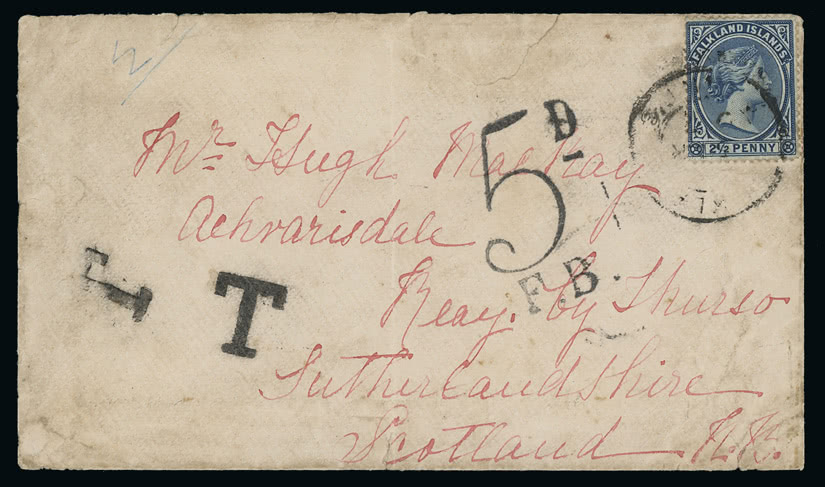 FALKLAND ISLANDS
2½ PENNY
5D
F.B.
Mr. Hugh MacKay
Achvarisdale
Reay. by Thurso
Sutherlandshire
Scotland N.B.
T
T